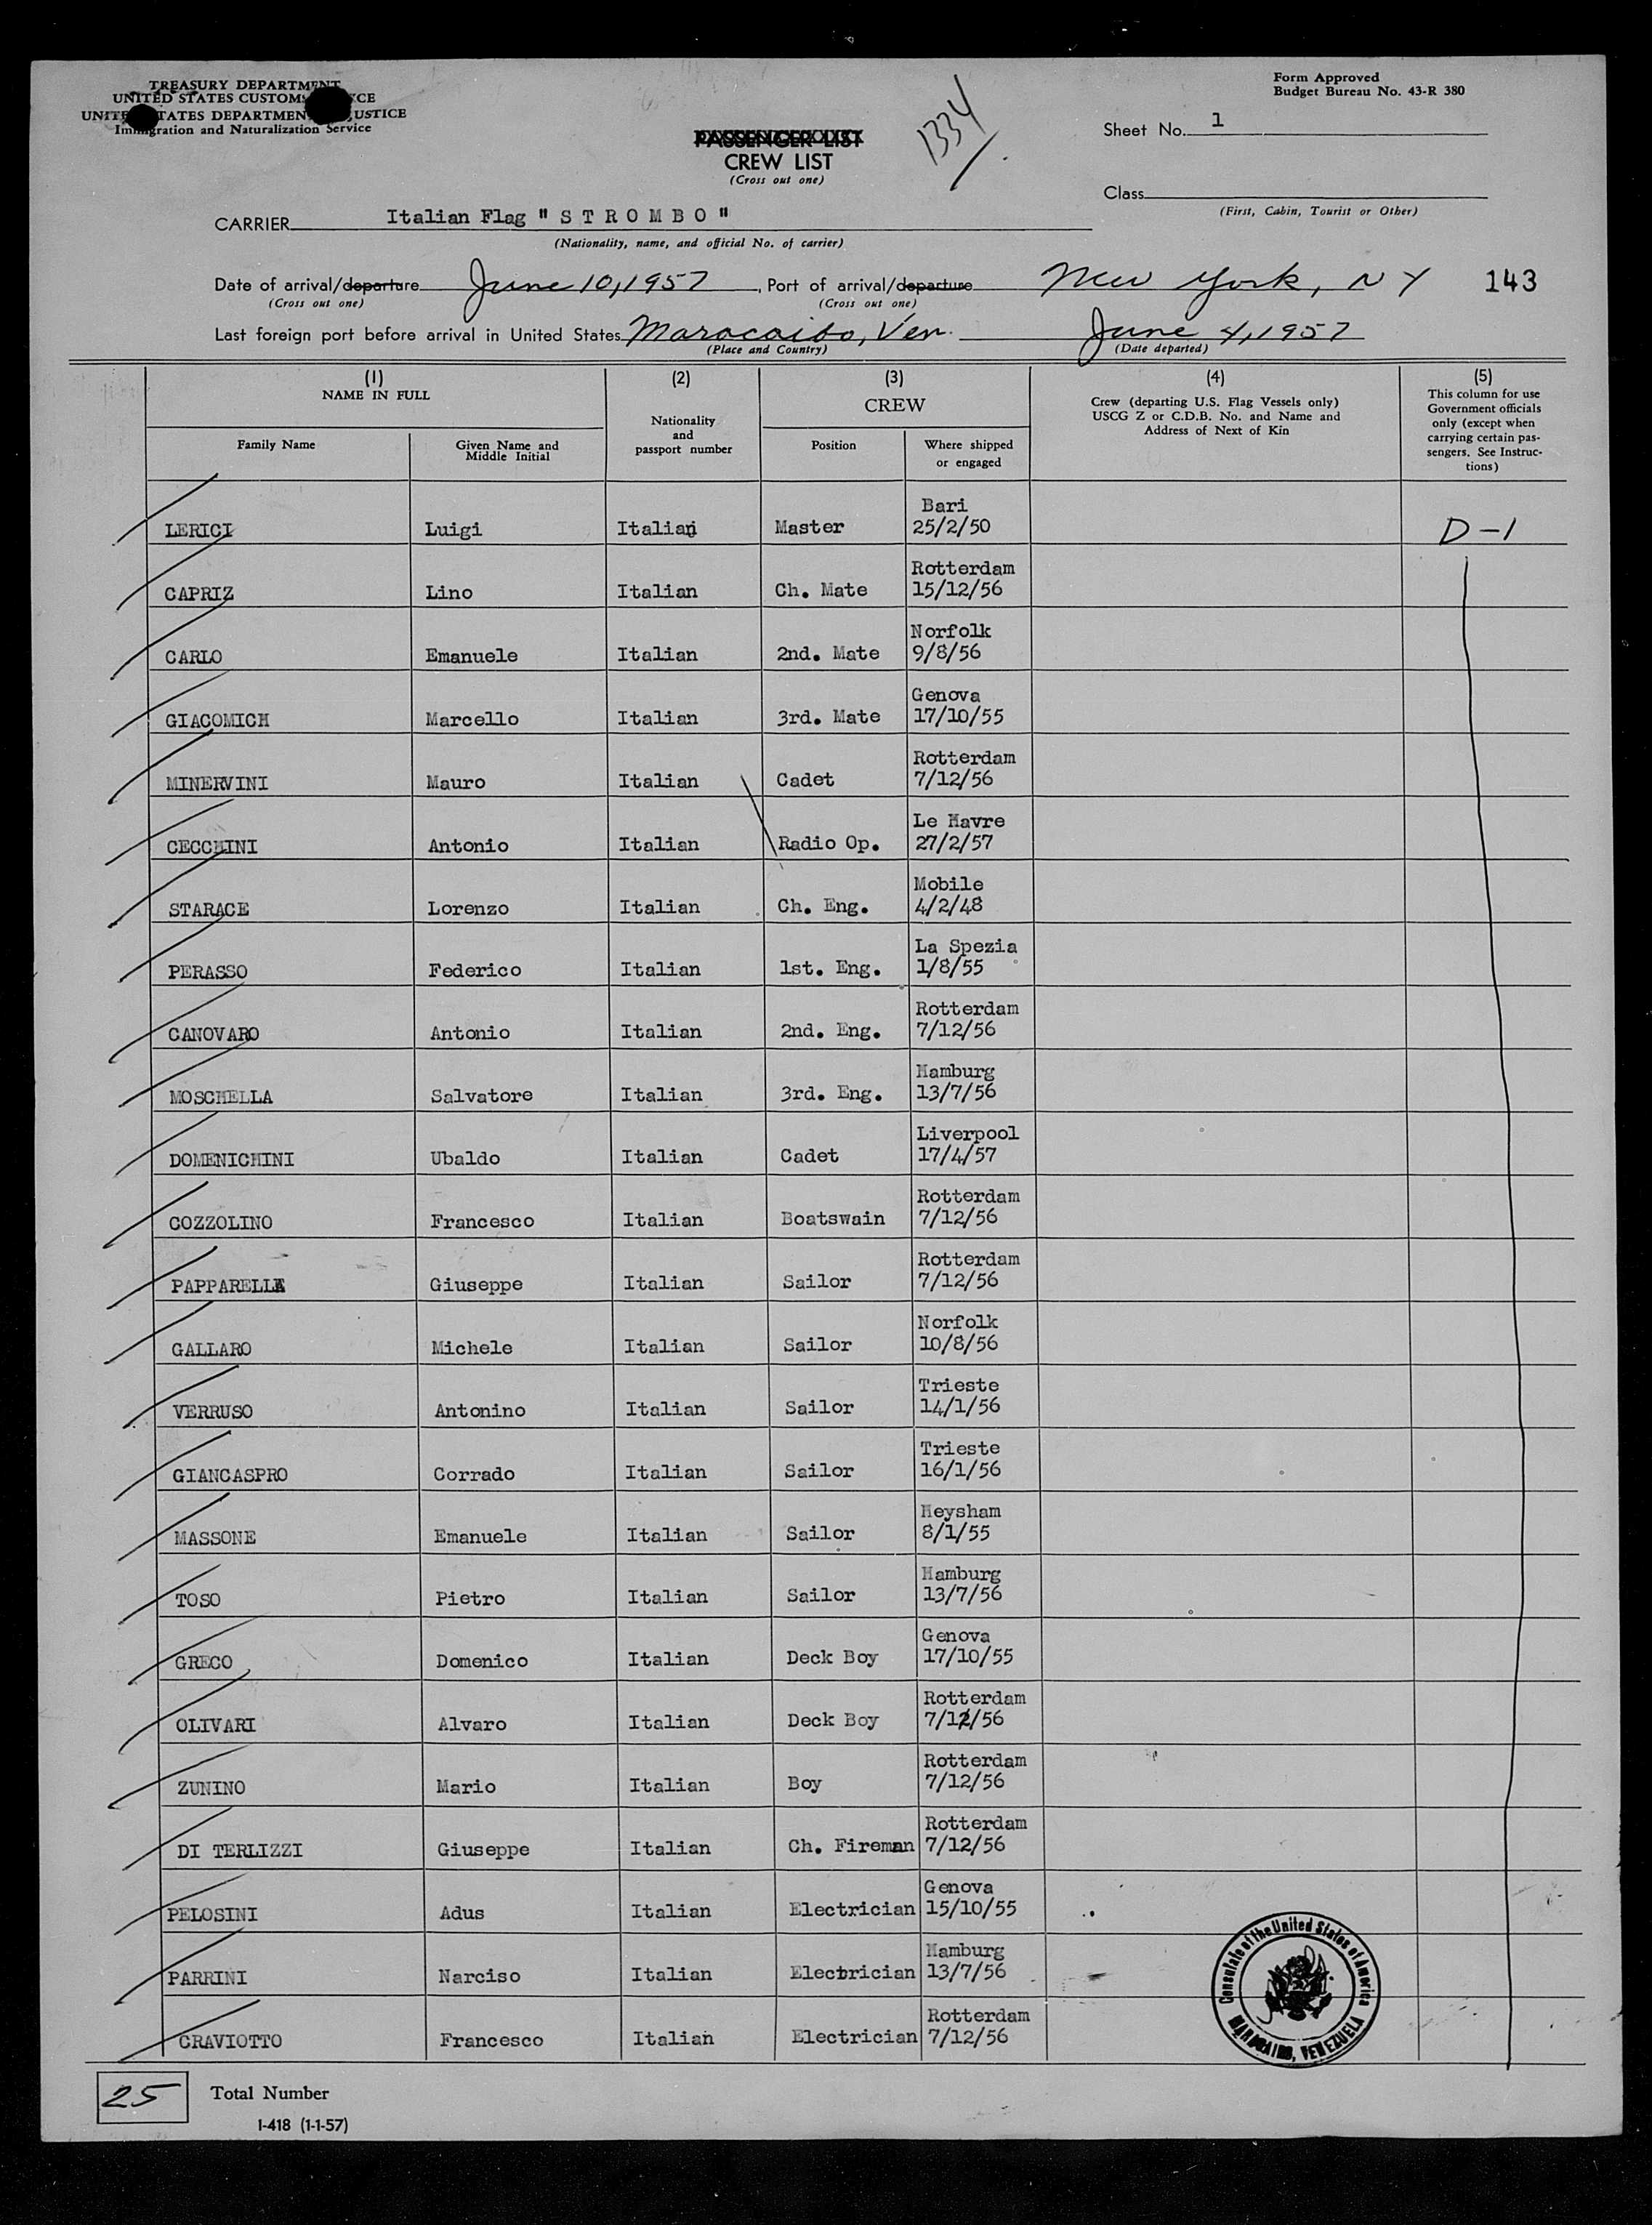 TREASURY DEPARTMENT
UNITED STATES CUSTOMS
UNITED STATES DEPARTMENT JUSTICE
Immigration and Naturalization Service
Form Approved
Budget Bureau No. 43-R 380
1334
Sheet No. 1
PASSENGER LIST
CREW LIST
(Cross out one)
Class
(First, Cabin, Tourist or Other)
CARRIER Italian Flag " S T R O M B O "
(Nationality, name, and official No. of carrier)
Date of arrival/departure June 10, 1957, Port of arrival/departure New York, NY 143
(Cross out one) (Cross out one)
Last foreign port before arrival in United States Maracaibo, Ven. June 4, 1957
(Place and Country) (Date departed)
(1) (2) (3) (4) (5)
NAME IN FULL
Family Name
Given Name and
Middle Initial
Nationality
and
passport number
CREW
Position
Where shipped
or engaged
Crew (departing U.S. Flag Vessels only)
USCG Z or C.D.B. No. and Name and
Address of Next of Kin
This column for use
Government officials
only (except when
carrying certain pas-
sengers. See Instruc-
tions)
Bari
LERICI Luigi Italian Master 25/2/50 D-1
Rotterdam
CAPRIZ Lino Italian Ch. Mate 15/12/56
Norfolk
CARLO Emanuele Italian 2nd. Mate 9/8/56
Genova
GIACOMICH Marcello Italian 3rd. Mate 17/10/55
Rotterdam
MINERVINI Mauro Italian Cadet 7/12/56
Le Havre
CECCHINI Antonio Italian Radio Op. 27/2/57
Mobile
STARACE Lorenzo Italian Ch. Eng. 4/2/48
La Spezia
PERASSO Federico Italian 1st. Eng. 1/8/55
Rotterdam
CANOVARO Antonio Italian 2nd. Eng. 7/12/56
Hamburg
MOSCHELLA Salvatore Italian 3rd. Eng. 13/7/56
Liverpool
DOMENICHINI Ubaldo Italian Cadet 17/4/57
Rotterdam
COZZOLINO Francesco Italian Boatswain 7/12/56
Rotterdam
PAPPARELLA Giuseppe Italian Sailor 7/12/56
Norfolk
GALLARO Michele Italian Sailor 10/8/56
Trieste
VERRUSO Antonino Italian Sailor 14/1/56
Trieste
GIANCASPRO Corrado Italian Sailor 16/1/56
Heysham
MASSONE Emanuele Italian Sailor 8/1/55
Hamburg
TOSO Pietro Italian Sailor 13/7/56
Genova
GRECO Domenico Italian Deck Boy 17/10/55
Rotterdam
OLIVARI Alvaro Italian Deck Boy 7/12/56
Rotterdam
ZUNINO Mario Italian Boy 7/12/56
Rotterdam
DI TERLIZZI Giuseppe Italian Ch. Fireman 7/12/56
Genova
PELOSINI Adus Italian Electrician 15/10/55
Hamburg
PARRINI Narciso Italian Electrician 13/7/56
Rotterdam
CRAVIOTTO Francesco Italian Electrician 7/12/56
Consulate of the United States of America
MARACAIBO, VENEZUELA
25 Total Number
I-418 (1-1-57)